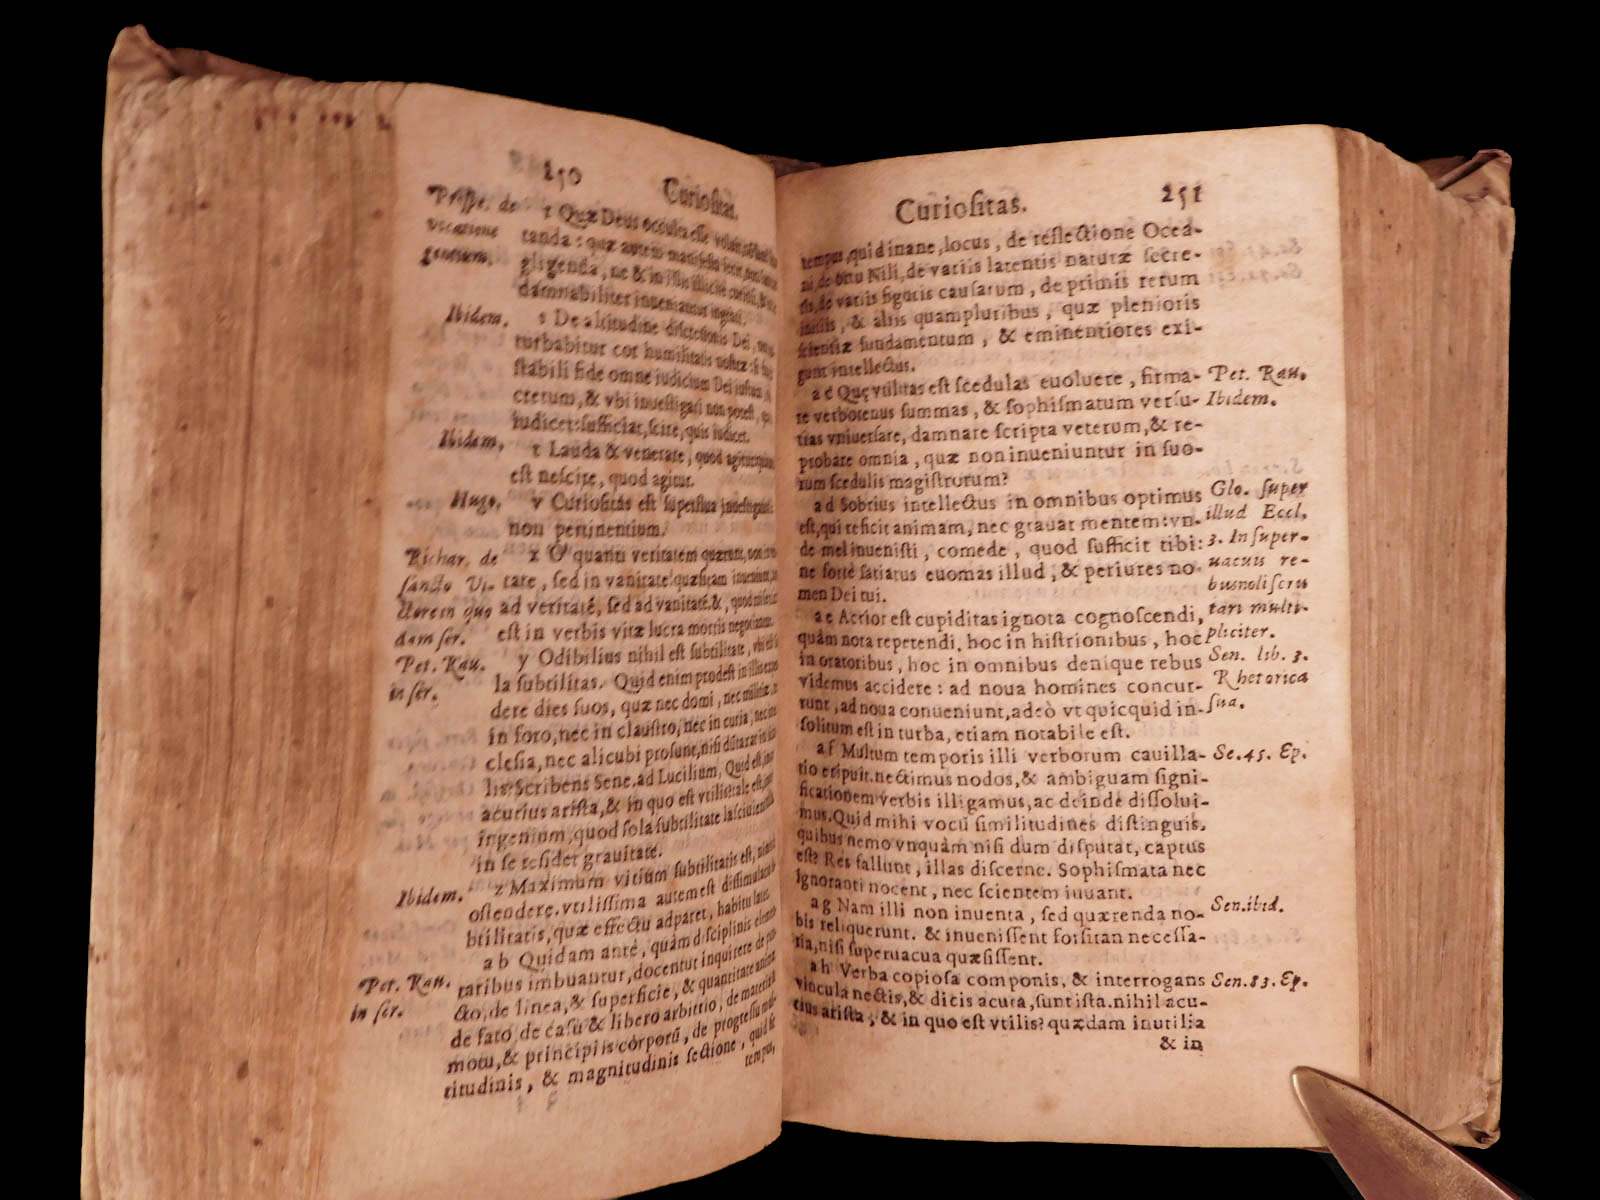 250 Curiositas.
Prosp. de
vocatione
gentium.
r Quæ Deus occulta esse voluit
tanda: quæ autem manifesta
gligenda, ne & in illis illicitè curiosi, &
damnabiliter inueniamur ingrati.
Ibidem.
s De altitudine discretionis Dei, non
turbabitur cor humilitatis nostræ: si
stabili fide omne iudicium Dei iustum
cretum, & vbi inuestigari non potest,
iudicet: sufficiat, scire, quis iudicet.
Ibidem.
t Lauda & venerare, quod agitur: quia
est nescire, quod agitur.
Hugo.
v Curiositas est superflua inuestigatio
non pertinentium.
Richar. de
sancto Vi-
ctorem quo
dam ser.
x O quanti veritatem quærunt, non in
tate, sed in vanitate! quæsitam inueniunt,
ad veritatē, sed ad vanitatē. &, quod
est in verbis vitæ lucra mortis negotiantur.
Pet. Rau.
in ser.
y Odibilius nihil est subtilitate, vbi est
la subtilitas. Quid enim prodest in illis
dere dies suos, quæ nec domi, nec militiæ,
in foro, nec in claustro, nec in curia, nec in
clesia, nec alicubi prosunt, nisi dūtaxat in
lis? Scribens Sene. ad Lucilium, Quid est,
acutius arista, & in quo est vtilis? tale est,
ingenium, quod sola subtilitate
in se residet grauitate.
Ibidem.
z Maximum vitium subtilitatis est, nimis
ostendere. vtilissima autem est dissimulatio
btilitatis, quæ effectu adparet, habitu latet.
Pet. Rau.
in ser.
a b Quidam antè, quàm disciplinis elemen-
taribus imbuantur, docentur inquirere de
cto, de linea, & superficie, & quantitate animæ
de fato, de casu & libero arbitrio, de materia &
motu, & principiis corporū, de progressu
titudinis, & magnitudinis sectione, quid sit
tempus,
Curiositas. 251
tempus, quid inane, locus, de reflectione Ocea-
ni, de ortu Nili, de variis latentis naturæ secre-
tis, de variis figuris causarum, de primis rerum
initiis, & aliis quampluribus, quæ plenioris
scientiæ fundamentum, & eminentiores exi-
gunt intellectus.
a c Quę vtilitas est scedulas euoluere, firma-
re verbotenus summas, & sophismatum versu-
tias vniuersare, damnare scripta veterum, & re-
probare omnia, quæ non inueniuntur in suo-
rum scedulis magistrorum?
Pet. Rau.
Ibidem.
a d Sobrius intellectus in omnibus optimus
est, qui reficit animam, nec grauat mentem: vn-
de mel inuenisti, comede, quod sufficit tibi:
ne fortè satiatus euomas illud, & periures no-
men Dei tui.
Glo. super
illud Eccl.
3. In super-
uacuis re-
bus noli scru
tari multi-
pliciter.
a e Acrior est cupiditas ignota cognoscendi,
quàm nota repetendi. hoc in histrionibus, hoc
in oratoribus, hoc in omnibus denique rebus
videmus accidere: ad noua homines concur-
runt, ad noua conueniunt, adeò vt quicquid in-
solitum est in turba, etiam notabile est.
Sen. lib. 3.
Rhetorica
sua.
a f Multum temporis illi verborum cauilla-
tio eripuit. nectimus nodos, & ambiguam signi-
ficationem verbis illigamus, ac deinde dissolui-
mus. Quid mihi vocū similitudines distinguis,
quibus nemo vnquàm nisi dum disputat, captus
est? Res fallunt, illas discerne. Sophismata nec
ignoranti nocent, nec scientem iuuant.
Se. 45. Ep.
a g Nam illi non inuenta, sed quærenda no-
bis reliquerunt. & inuenissent forsitan necessa-
ria, nisi superuacua quæsissent.
Sen. ibid.
a h Verba copiosa componis, & interrogans
vincula nectis, & dicis acuta, sunt ista. nihil acu-
tius arista, & in quo est vtilis? quædam inutilia
Sen. 83. Ep.
& in